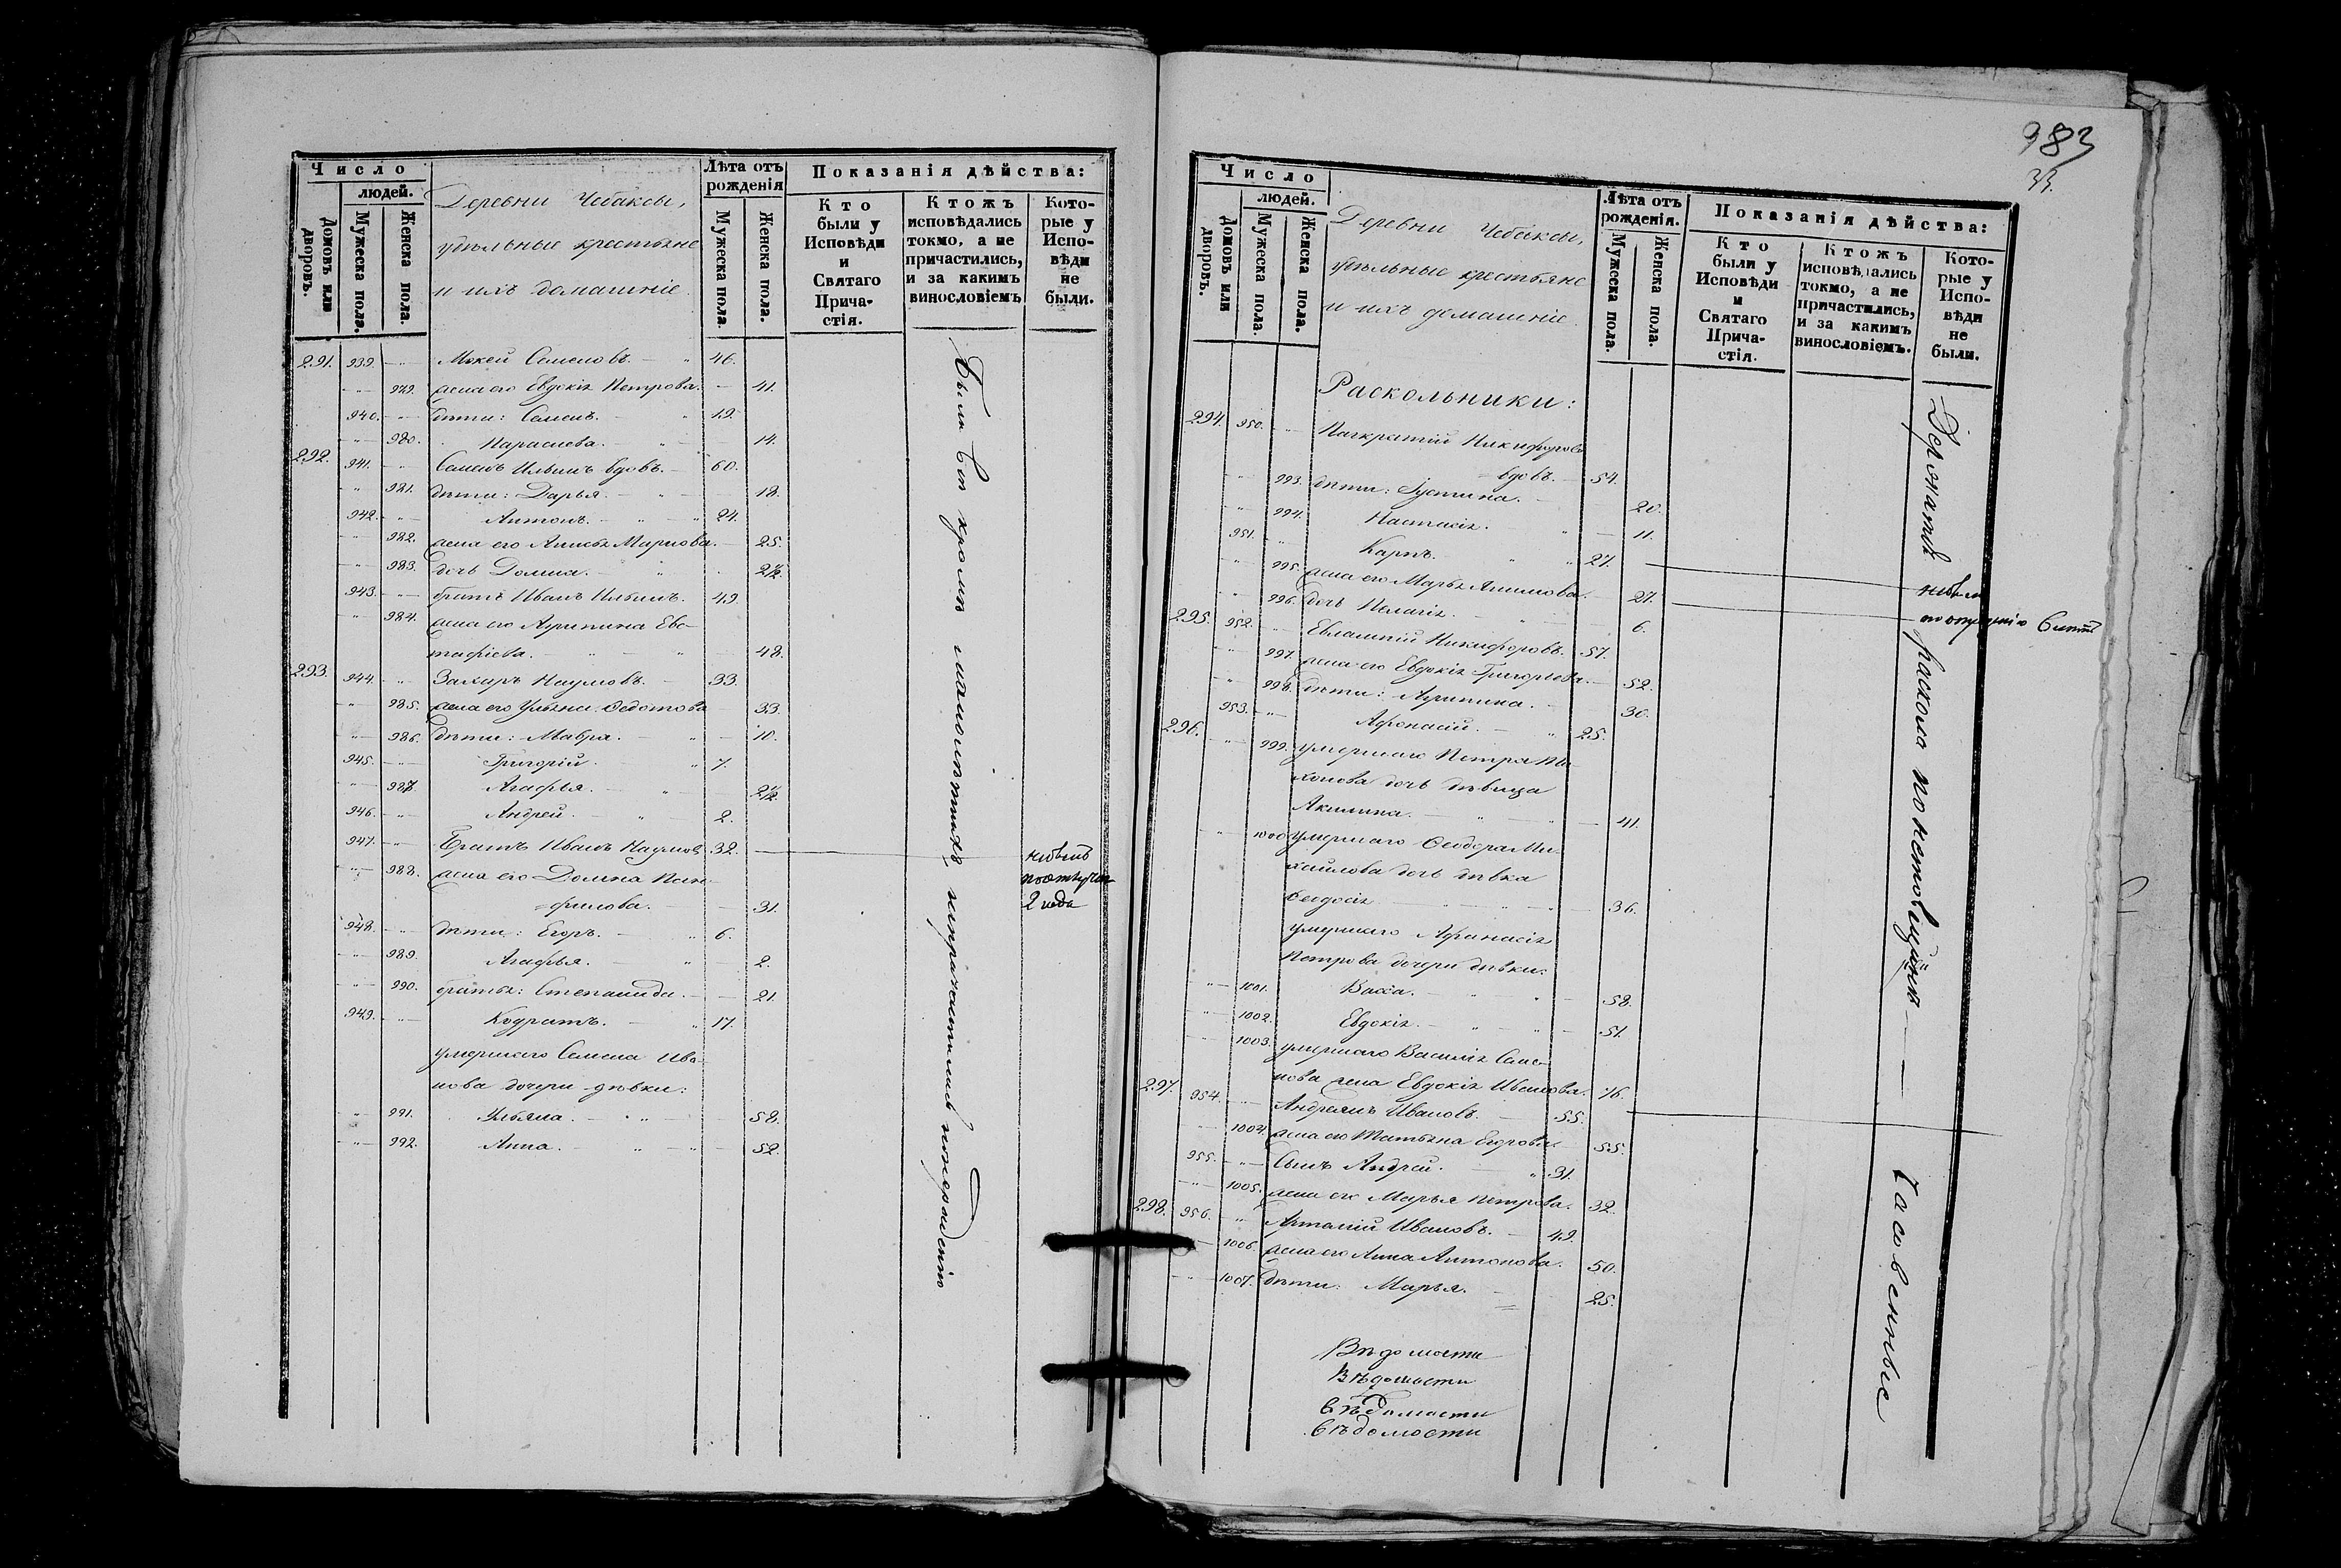 Число
людей.
Домовъ или дворовъ.
Мужеска пола.
Женска пола.
Деревни Чебаксы,
удѣльные крестьяне
и ихъ домашніе.
Лѣта отъ рожденія
Мужеска пола.
Женска пола.
Показанія дѣйства:
Кто были у Исповѣди и Святаго Причастія.
Ктожъ исповѣдались токмо, а не причастились, и за какимъ винословіемъ
Которые у Исповѣди не были.
291. 939. Мокей Семеновъ. 46.
979. жена его Евдокія Петрова. 41.
940. дѣти: Семенъ. 19.
980. Парасковa. 14.
292. 941. Семенъ Ильинъ вдовъ. 60.
981. дѣти: Дарья. 18.
942. Антонъ. 24.
982. жена его Анисья Маркова. 25.
983. дочь Домна. 2½.
943. братъ Иванъ Ильинъ. 49.
984. жена его Агрипина Евс-
тафіева. 48.
293. 944. Захаръ Наумовъ. 33.
985. жена его Ульяна Федотова 33.
986. дѣти: Мавра. 10.
945. Григорій. 7.
987. Агафья. 2½.
946. Андрей. 2.
947. Братъ Иванъ Наумовъ 32.
988. жена его Домна Пан-
филова. 31.
948. дѣти: Егоръ. 6.
989. Агафья. 2.
990. братья: Степанида. 21.
949. Кодратъ. 17.
умершаго Семена Ива-
нова дочери дѣвки:
991. Ульяна. 58.
992. Анна. 52.
Были всѣ кромѣ малолѣтныхъ, непричастились по нерадѣнію
небылъ
по отлучкѣ
2 года
983
33.
Число
людей.
Домовъ или дворовъ.
Мужеска пола.
Женска пола.
Деревни Чебаксы,
удѣльные крестьяне
и ихъ домашніе.
Лѣта отъ рожденія.
Мужеска пола.
Женска пола.
Показанія дѣйства:
Кто были у Исповѣди и Святаго Причастія.
Ктожъ исповѣдались токмо, а не причастились, и за какимъ винословіемъ.
Которые у Исповѣди не были.
Раскольники:
294. 950. Панкратій Никифоровъ
вдовъ. 54.
993. дѣти: Іустина. 20.
994. Настасія. 11.
951. Карпъ. 27.
995. жена его Марья Акимова. 27.
996. дочь Пелагія. 6.
295. 952. Евлампій Никифоровъ. 57.
997. жена его Евдокія Григорьева. 52.
998. дѣти: Агрипина. 30.
953. Афонасій. 25.
296. 999. умершаго Петра Ти-
хонова дочь дѣвица
Акилина. 41.
1000 умершаго Феодора Ми-
хайлова дочь дѣвка
Феодосія 36.
умершаго Афанасія
Петрова дочери дѣвки:
1001. Васса. 58.
1002. Евдокія. 51.
1003. умершаго Василія Семе-
нова жена Евдокія Иванова. 76.
297. 954. Андреянъ Ивановъ. 55.
1004. жена его Татьяна Егорова. 55.
955. Сынъ Андрей. 31.
1005. жена его Марья Петрова. 32.
298. 956. Антоній Ивановъ. 49.
1006. жена его Анна Антонова. 50.
1007. дѣти: Марья. 25.
Держатся раскола по
небыли
6 лѣтъ
часовенные
Вѣдомости
Вѣдомости
вѣдомости
вѣдомости